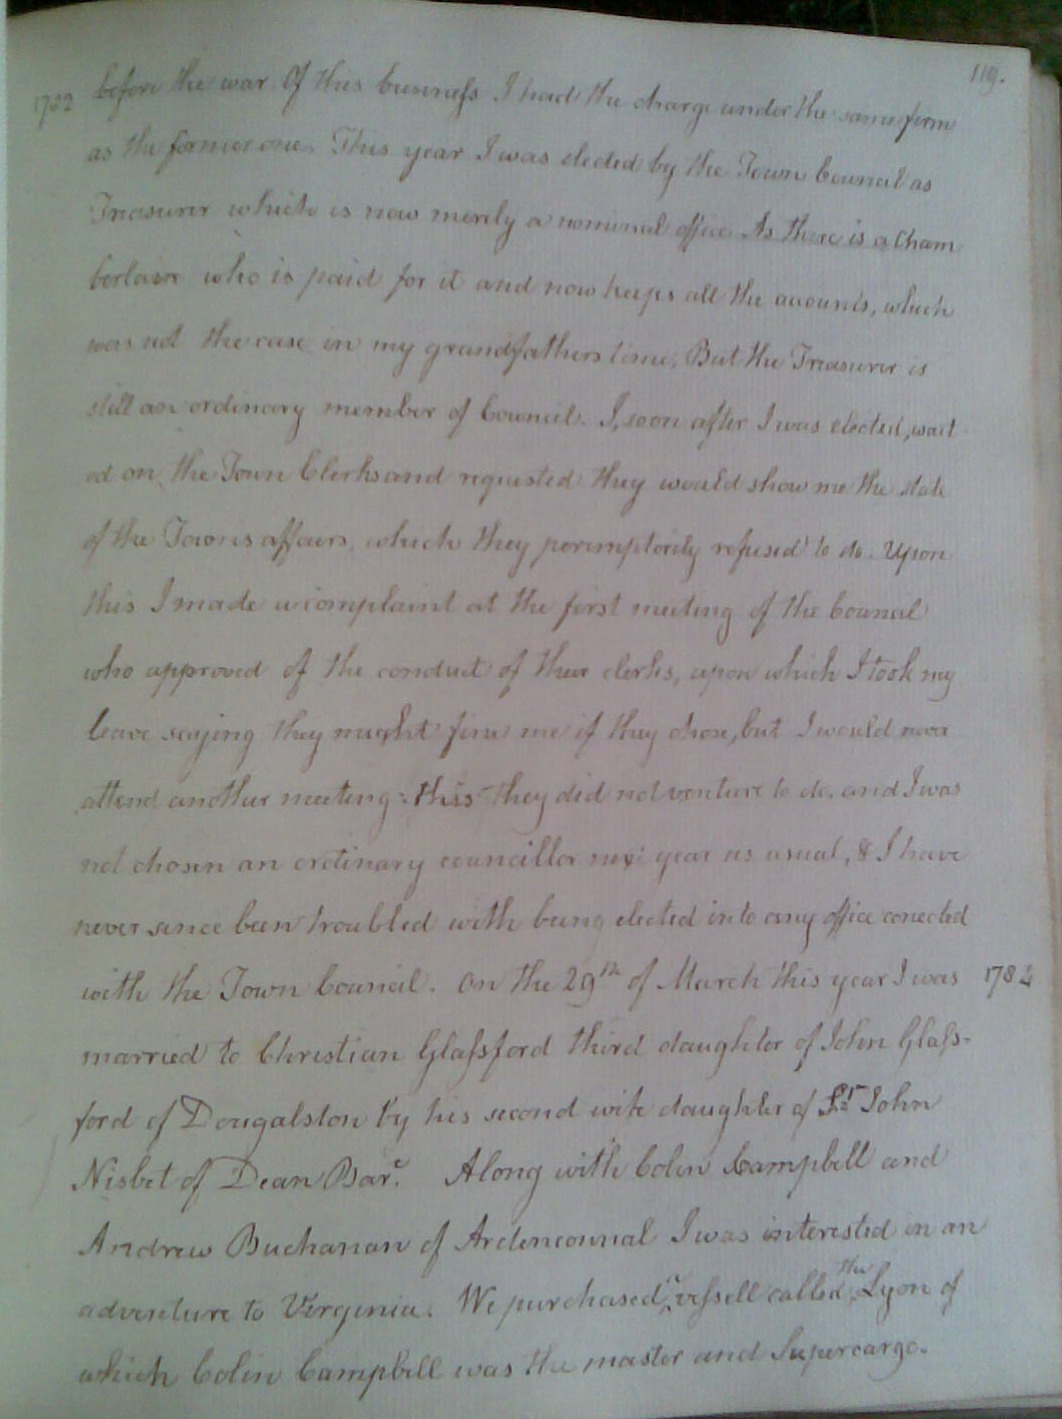 119.
before the war. Of this business I had the charge under the same firm
as the former one. This year I was elected by the Town Council as
Treasurer which is now merely a nominal office As there is a Cham
berlain who is paid for it and now keeps all the accounts, which
was not the case in my grandfathers time. But the Treasurer is
still an ordinary member of Council. I, soon after I was elected, wait
ed on the Town Clerks and requested they would show me the state
of the Towns affairs, which they peremptorily refused to do. Upon
this I made a complaint at the first meeting of the Council
who approved of the conduct of their clerks, upon which I took my
leave saying they might fine me if they chose, but I would never
attend another meeting: this they did not venture to do. and I was
not chosen an ordinary councillor next year as usual, & I have
never since been troubled with being elected into any office conected
with the Town Council. On the 29th of March this year I was 1784
married to Christian Glassford third daughter of John Glass-
ford of Dougalston by his second wife daughter of Sr John
Nisbet of Dean Bart. Along with Colin Campbell and
Andrew Buchanan of Ardenconnal I was interested in an
adventure to Virginia. We purchased a vessell called the Lyon of
which Colin Campbell was the master and Supercargo.